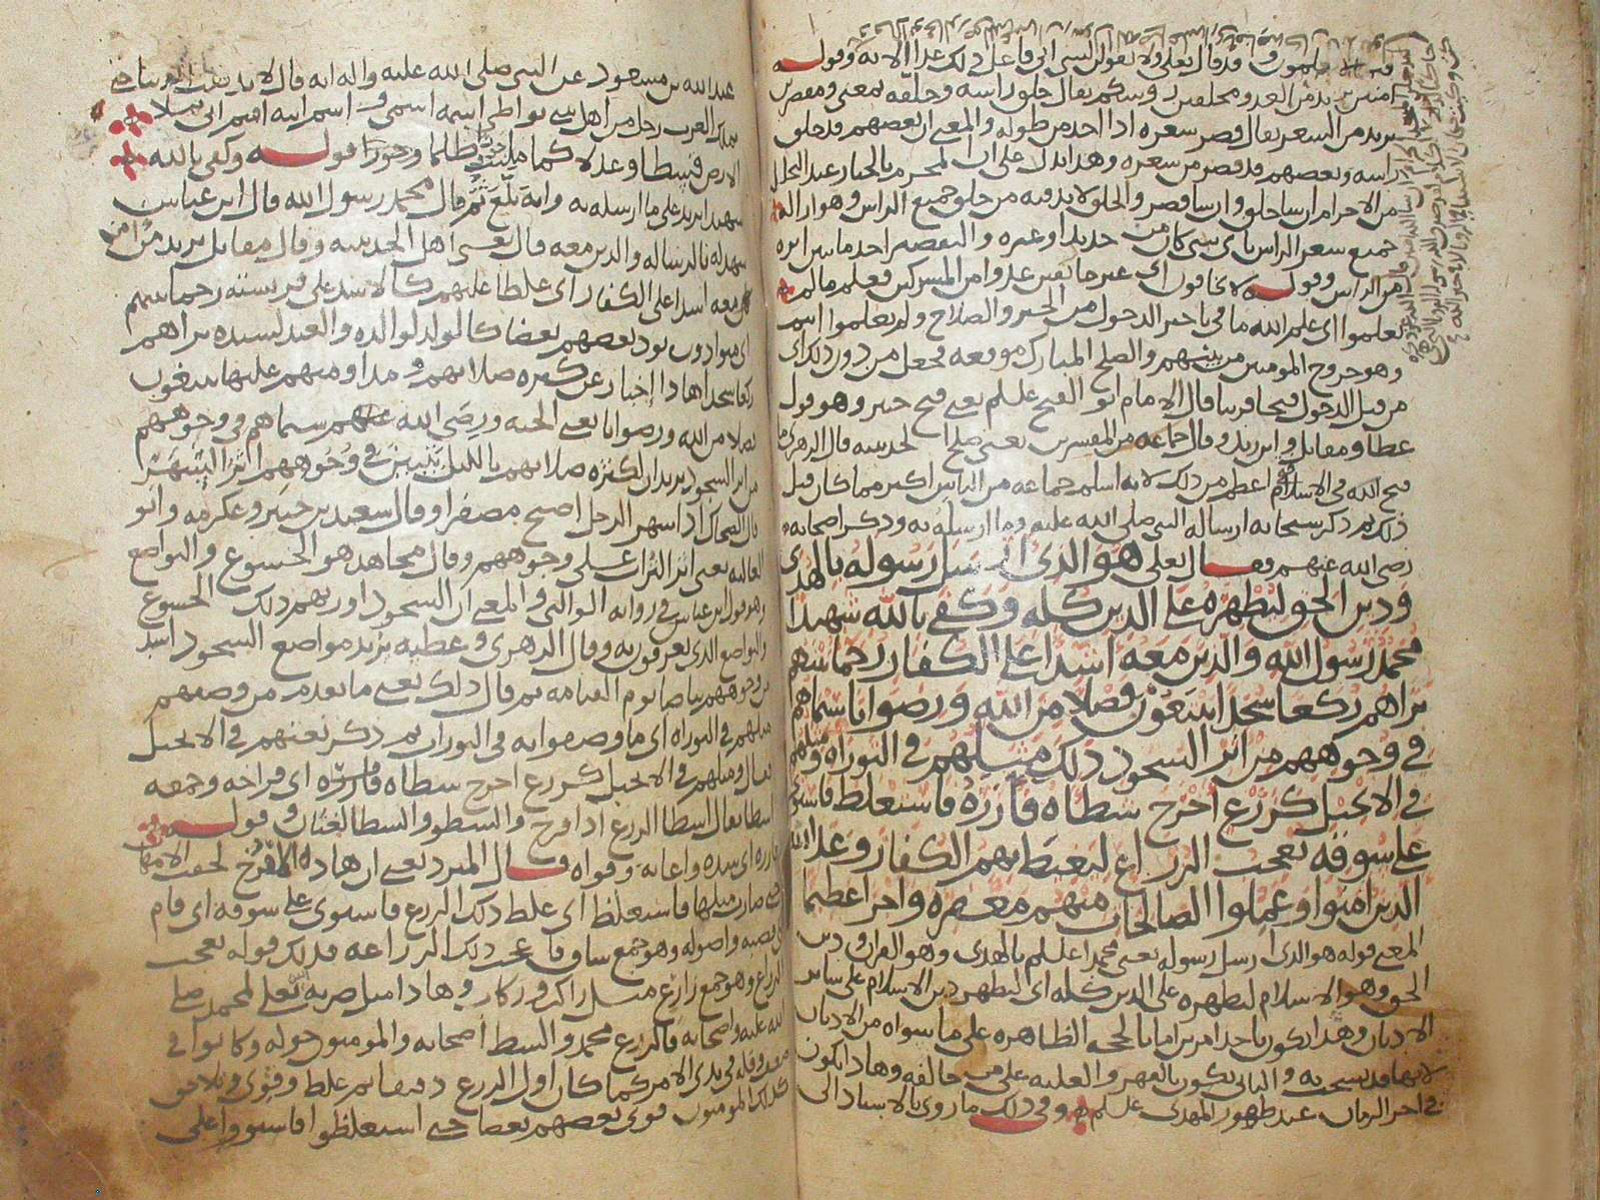 قد قال تعالى ولا تقولن لشي اني فاعل ذلك غدا الايه وقوله
امنين يريد من العدو ومحلقين روسكم يقال حلق راسه وحلقه بمعنى ومقصرين
يريد من الشعر يقال قصر شعره اذا اخذ من طوله والمعنى ان بعضهم قد حلق
راسه وبعضهم قد قصر من شعره وهذا يدل على ان المحرم بالخيار عند التحلل
من الاحرام ان شا حلق وان شا قصر والحلق لا بد فيه من حلق جميع الراس وهو ازاله
جميع شعر الراس باي شي كان من حديد او غيره والتقصير اخذ ما تيسر
من الراس وقوله لا تخافون اي غير خايفين عدوا من المشركين فعلم ما لم
تعلموا اي علم الله ما في تاخير الدخول من الخير والصلاح ولم تعلموا انتم
وهو خروج المومنين من بينهم والصلح المبارك موقعه فجعل من دون ذلك اي
من قبل الدخول فتحا قريبا قال الامام ابو الفتح علـلم يعني فتح خيبر وهو قول
عطا ومقاتل وابن زيد وقال جماعه من المفسرين يعني صلح الحديبيه قال الزهري ما
فتح الله في الاسلام اعظم من ذلك لانه اسلم جماعه من الناس اكثر مما كان قبل
ذلك ثم ذكر سبحانه ارساله النبي صلى الله عليه وما ارسله به وذكر اصحابه
رضي الله عنهم فقال تعلى هو الذي ارسل رسوله بالهدى
ودين الحق ليظهره على الدين كله وكفى بالله شهيدا
محمد رسول الله والذين معه اشدا على الكفار رحما بينهم
تراهم ركعا سجدا يبتغون فضلا من الله ورضوانا سيماهم
في وجوههم من اثر السجود ذلك مثلهم في التوراه ومثلهم
في الانجيل كزرع اخرج شطاه فازره فاستغلظ فاستوى
على سوقه يعجب الزراع ليغيظ بهم الكفار وعد الله
الذين امنوا وعملوا الصالحات منهم مغفره واجرا عظيما
المعنى قوله هو الذي ارسل رسوله يعني محمدا علـلم بالهدى وهو القران ودين
الحق وهو الاسلام ليظهره على الدين كله اي ليظهر دين الاسلام على ساير
الاديان وهذا يكون باحد امرين اما بالحجه الظاهره على ما سواه من الاديان
والثاني يكون بالقهر والغلبه على من خالفه وهاذا يكون
في اخر الزمان عند ظهور المهدي علـلم وفي ذلك ما روي بالاسناد الى
عبد الله بن مسعود عن النبي صلى الله عليه واله انه قال لا تذهب الدنيا حتى
يملك العرب رجل من اهل بيتي يواطي اسمه اسمي واسم ابيه اسم ابي يملا
الارض قسطا وعدلا كما مليت ظلما وجورا قوله وكفى بالله
شهيدا يريد على ما ارسله به وايه بلغ ثم قال محمد رسول الله قال ابن عباس
شهد له بالرساله والذين معه قال يعني اهل الحديبيه وقال مقاتل يريد من امن
معه اشدا على الكفار اي غلظا عليهم كالاسد على فريسته رحما بينهم
اي متوادون يود بعضهم بعضا كالولد لوالده والعبد لسيده تراهم
ركعا سجدا هاذا اخبار عن كثره صلاتهم ومداومتهم عليها يبتغون
فضلا من الله ورضوانا يعني الجنه ورضى الله عنهم سيماهم في وجوههم
من اثر السجود يريد ان لكثره صلاتهم بالليل تتبين في وجوههم اثر السهر
قال الضحاك اذا سهر الرجل اصبح مصفرا وقال سعيد بن جبير وعكرمه وابو
العاليه يعني اثر التراب على وجوههم وقال مجاهد هو الخشوع والتواضع
وهو قول ابن عباس في روايه الوالبي والمعنى ان السجود اورثهم ذلك الخشوع
والتواضع الذي يعرفون به وقال الزهري وعطيه يريد مواضع السجود اشد
من وجوههم بياضا يوم القيامه ثم قال ذلك يعني ما تقدم من وصفهم
مثلهم في التوراه اي ما وصفوا به في التوراه ثم ذكر نعتهم في الانجيل
فقال ومثلهم في الانجيل كزرع اخرج شطاه فازره اي فراخه وجمعه
اشطا يقال اشطا الزرع اذا افرخ والشطو والشطا لغتان وقوله
فازره اي شده واعانه وقواه قال المبرد يعني ان هاذه الافرخ لحقت الامهات
حتى صارت مثلها فاستغلظ اي غلظ ذلك الزرع فاستوى على سوقه اي قام
على قصبه واصوله وهو جمع ساق يعجب ذلك الزراعه فذلك قوله يعجب
الزراع وهو جمع زارع مثل راكب وركاب وهاذا مثل ضربه الله تعلى لمحمد صلى
الله عليه واصحابه فالزرع محمد والشط اصحابه والمومنون حوله وكانوا في
ضعف وقله في بدي الامر كما كان اول الزرع دقيقا ثم غلظ وقوي وتلاحق
كذلك المومنون قوى بعضهم بعضا حتى استغلظوا فاستووا على